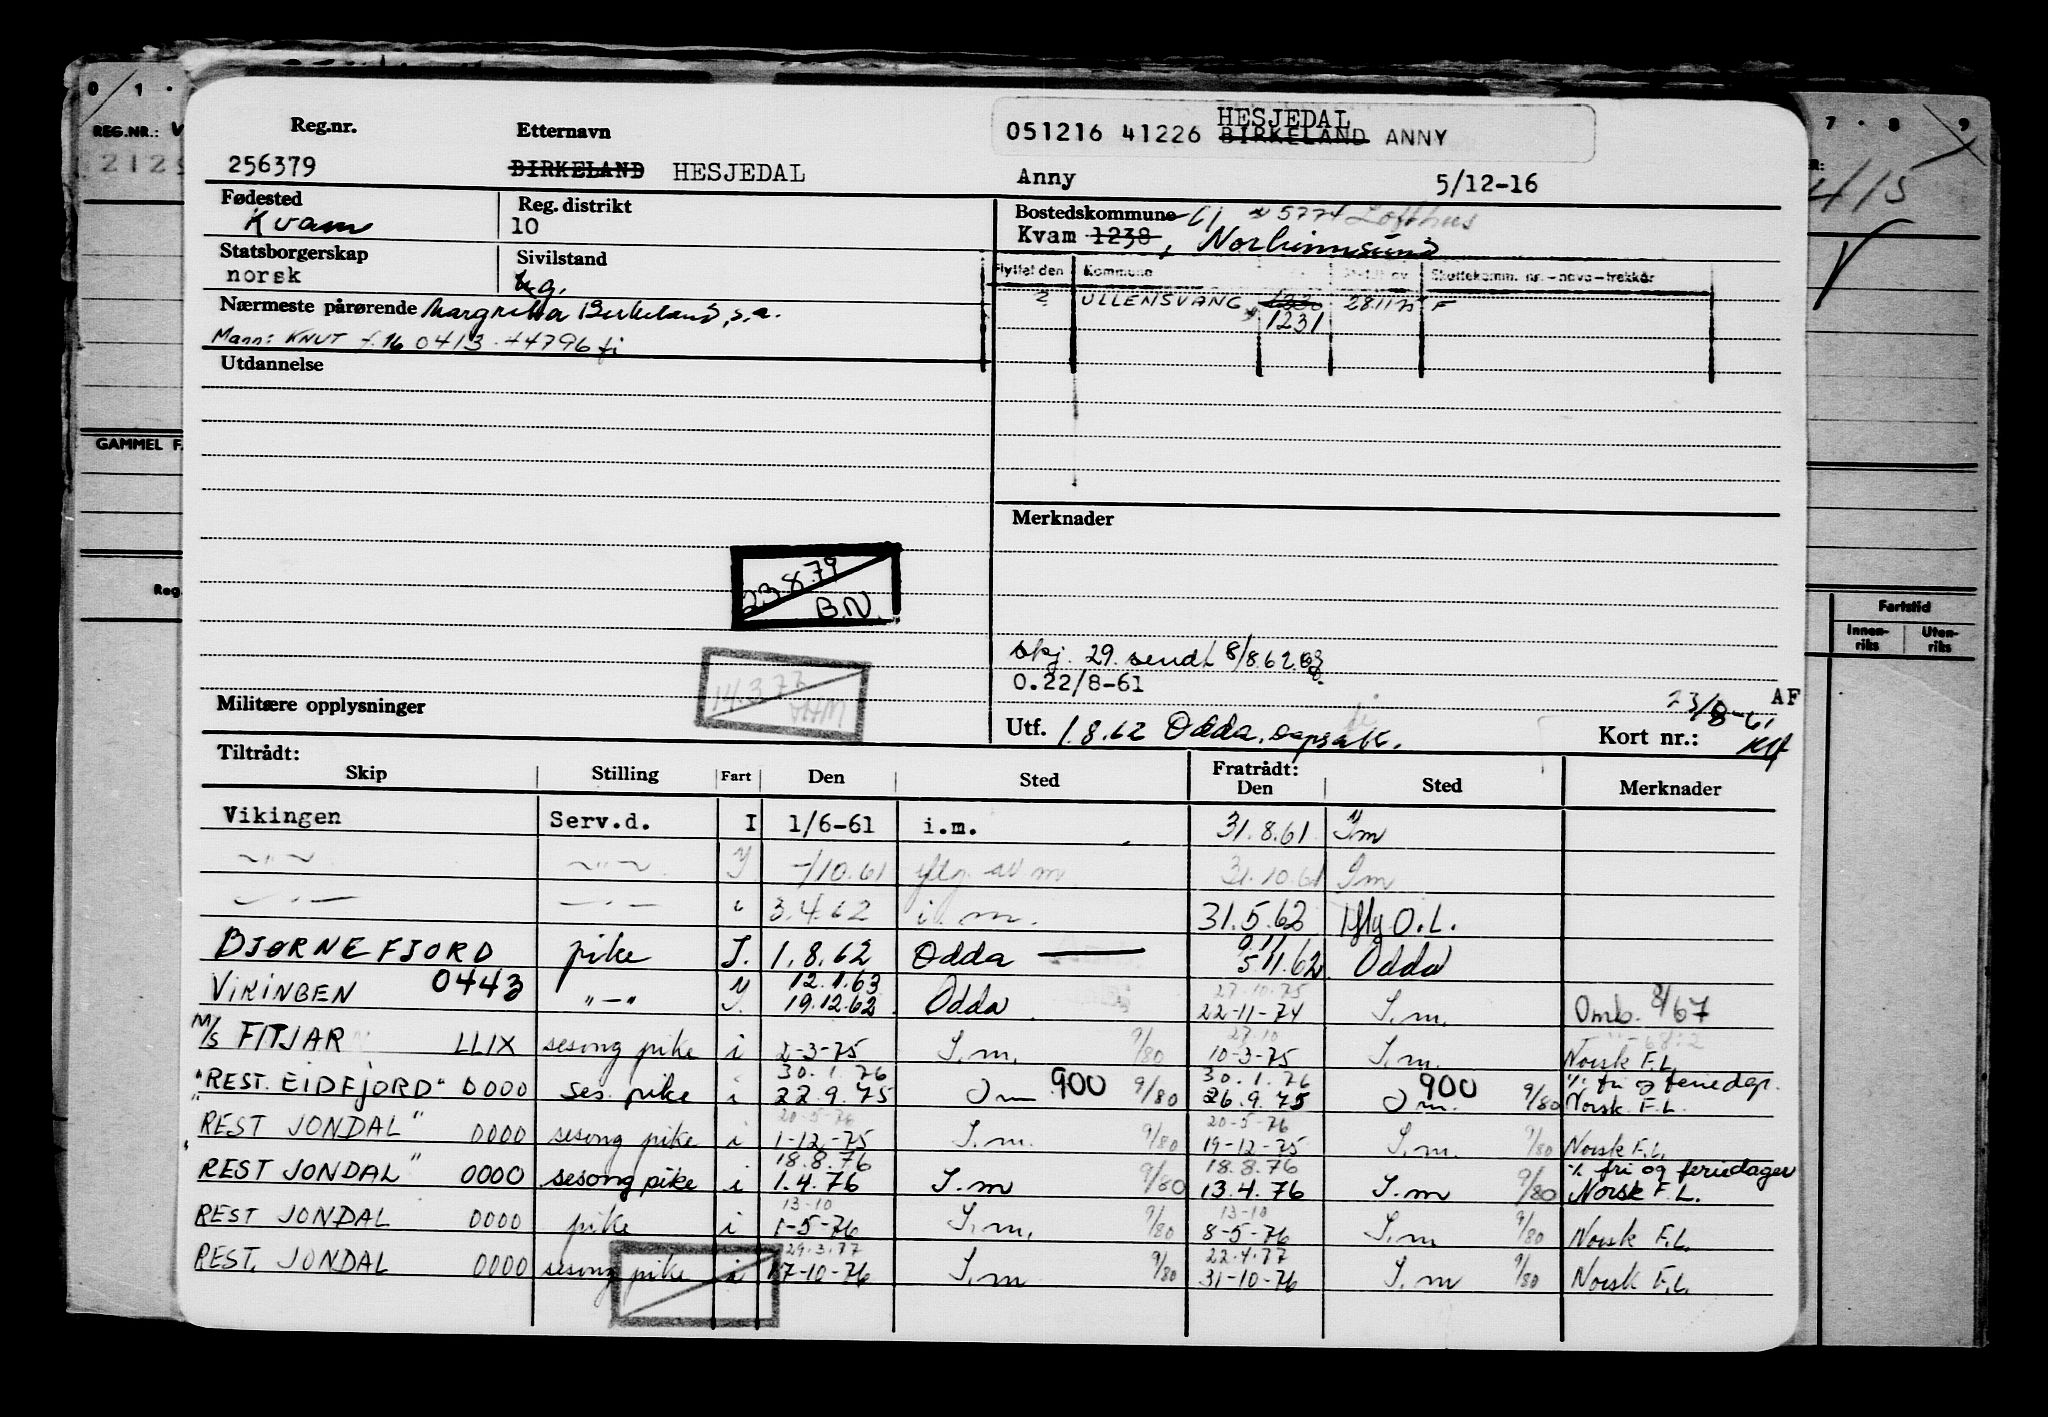 0 1 · 7 · 8 9
REG.NR.:
2125
GAMMEL F.
Reg.
415
Fartstid
Innen-riks Uten-riks
HESJEDAL
051216 41226 BIRKELAND ANNY
Reg.nr. Etternavn
256379 BIRKELAND HESJEDAL Anny 5/12-16
Fødested Kvam
Reg. distrikt 10
Bostedskommune 5774 Lofthus
Kvam 1238, Norheimsund
Statsborgerskap norsk
Sivilstand g.
Flyttet den Kommune Skattekomm. nr.-navn-trekkår
2 ULLENSVANG 1231 281175 F
Nærmeste pårørende Margretha Birkeland, s.a.
Mann: KNUT f. 16 0413 - 44796
Utdannelse
Merknader
23.8.79
B.N.
14.3.77
skj. 29. sendt 8/8.62.
0.22/8-61
23/8-61 AF
Militære opplysninger
Utf. 1.8.62 Odda, oppsak.
Kort nr.:
Tiltrådt: Fratrådt:
Skip Stilling Fart Den Sted Den Sted Merknader
Vikingen Serv.d. I 1/6-61 i.m. 31.8.61 I m
—"— —"— I -/10.61 iflg. av m 31.10.61 I m
— . — — . — i 3.4.62 i. m. 31.5.62 Iflg O.L.
BJØRNEFJORD pike I. 1.8.62 Odda 5.11.62 Odda
12.1.63 27.10.75
VIKINGEN 0443 "—" I. 19.12.62 Odda 22-11-74 I.m. Omb. 8/67
27.10
M/S FITJAR LLIX sesong pike i 2-3-75 I.m. 9/80 10-3-75 I.m. Norsk F.L.
30.1.76 30.1.76 % fri og feriedag.
"REST. EIDFJORD" 0000 ses. pike i 22.9.75 I m 900 9/80 26.9.75 I m. 900 9/80 Norsk F.L.
20-5-76 20-5-76
"REST JONDAL" 0000 sesong pike i 1-12-75 I.m. 9/80 19-12-75 I.m. 9/80 Norsk F.L.
18.8.76 18.8.76 % fri og feriedager
"REST JONDAL" 0000 sesong pike i 1.4.76 I.m 9/80 13.4.76 I.m 9/80 Norsk F.L.
13-10 13-10
REST JONDAL 0000 pike i 1-5-76 I.m. 9/80 8-5-76 I.m 9/80 Norsk F.L.
29.3.77 22.4.77
REST. JONDAL 0000 sesong pike i 17-10-76 I.m 9/80 31-10-76 I.m 9/80 Norsk F.L.